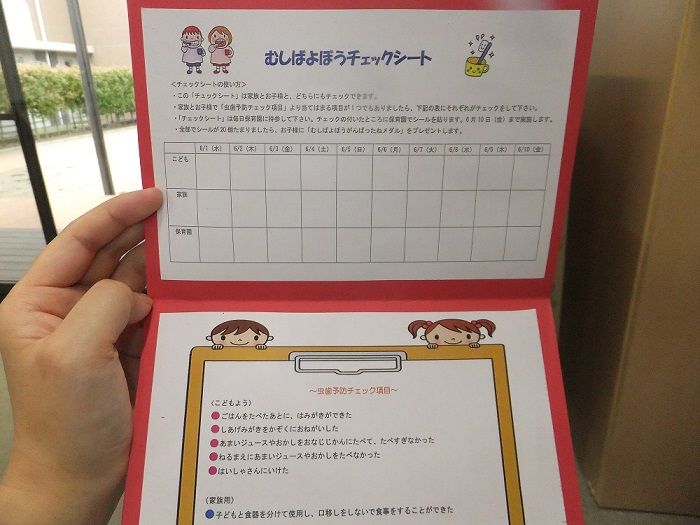 むしばよぼうチェックシート
＜チェックシートの使い方＞
・この「チェックシート」は家族とお子様と、どちらにもチェックできます。
・家族とお子様で「虫歯予防チェック項目」より当てはまる項目が１つでもありましたら、下記の表にそれぞれがチェックをして下さい。
・「チェックシート」は毎日保育園に持参して下さい。チェックの付いたところに保育園でシールを貼ります。６月１０日（金）まで実施します。
・全部でシールが２０個たまりましたら、お子様に「むしばよぼうがんばったねメダル」をプレゼントします。
6/1（水） 6/2（木） 6/3（金） 6/4（土） 6/5（日） 6/6（月） 6/7（火） 6/8（水） 6/9（木） 6/10（金）
こども
家族
保育園
～虫歯予防チェック項目～
（こどもよう）
●ごはんをたべたあとに、はみがきができた
●しあげみがきをかぞくにおねがいした
●あまいジュースやおかしをおなじじかんにたべて、たべすぎなかった
●ねるまえにあまいジュースやおかしをたべなかった
●はいしゃさんにいけた
（家族用）
●子どもと食器を分けて使用し、口移しをしないで食事をすることができた